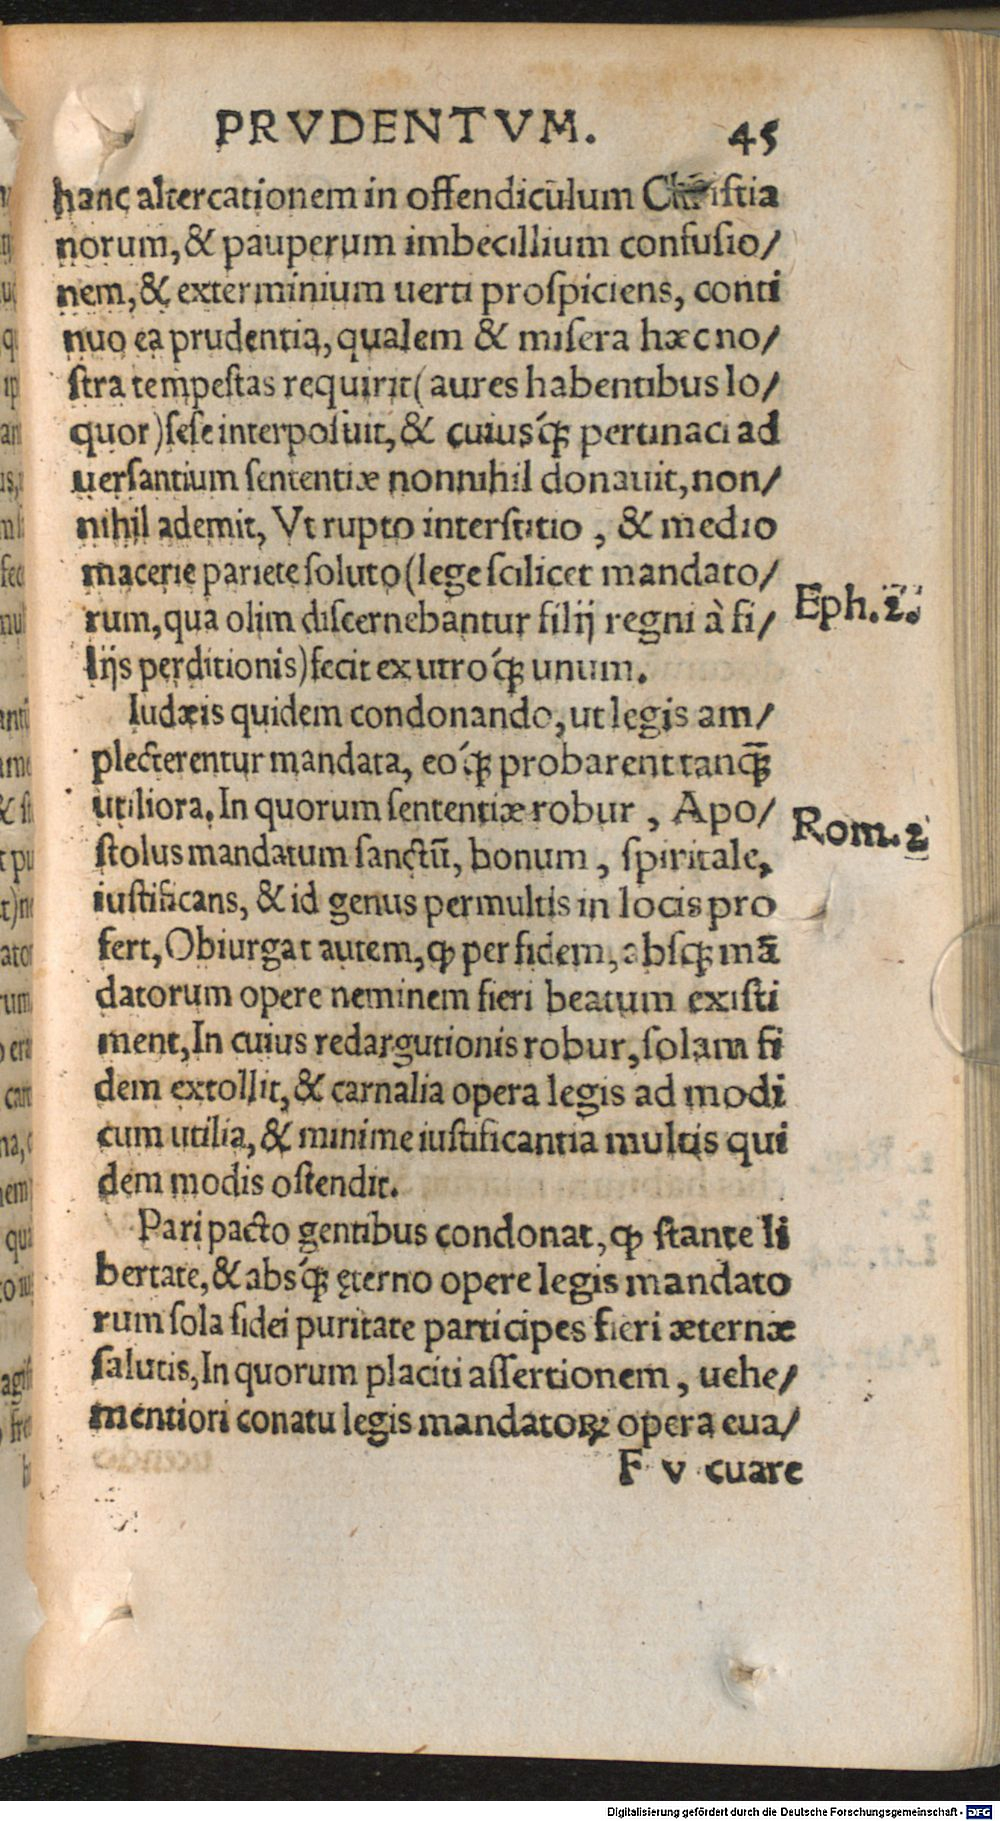 PRVDENTVM. 45
hanc altercationem in offendicūlum Christia
norum, & pauperum imbecillium confusio/
nem, & exterminium uerti prospiciens, conti
nuo ea prudentia, qualem & misera hæc no/
stra tempestas requirit (aures habentibus lo/
quor) sese interposuit, & cuiusq́ꝫ pertinaci ad
uersantium sententiæ nonnihil donauit, non/
nihil ademit, Vt rupto interstitio, & medio
macerie pariete soluto (lege scilicet mandato/
rum, qua olim discernebantur filij regni à fi/
lijs perditionis) fecit ex utroq́ꝫ unum.
Eph.2.
Iudæis quidem condonando, ut legis am/
plecterentur mandata, eoq́ꝫ probarent tanqꝫ̄
utiliora. In quorum sententiæ robur, Apo/
stolus mandatum sanctū, bonum, spiritale,
Rom.2
iustificans, & id genus permultis in locis pro
fert, Obiurgat autem, ꝙ per fidem, absqꝫ mā
datorum opere neminem fieri beatum existi
ment, In cuius redargutionis robur, solam fi
dem extollit, & carnalia opera legis ad modi
cum utilia, & minime iustificantia multis qui
dem modis ostendit.
Pari pacto gentibus condonat, ꝙ stante li
bertate, & absq́ꝫ ęterno opere legis mandato
rum sola fidei puritate participes fieri æternæ
salutis, In quorum placiti assertionem, uehe/
mentiori conatu legis mandatoꝝ opera eua/
F v cuare
Digitalisierung gefördert durch die Deutsche Forschungsgemeinschaft - DFG